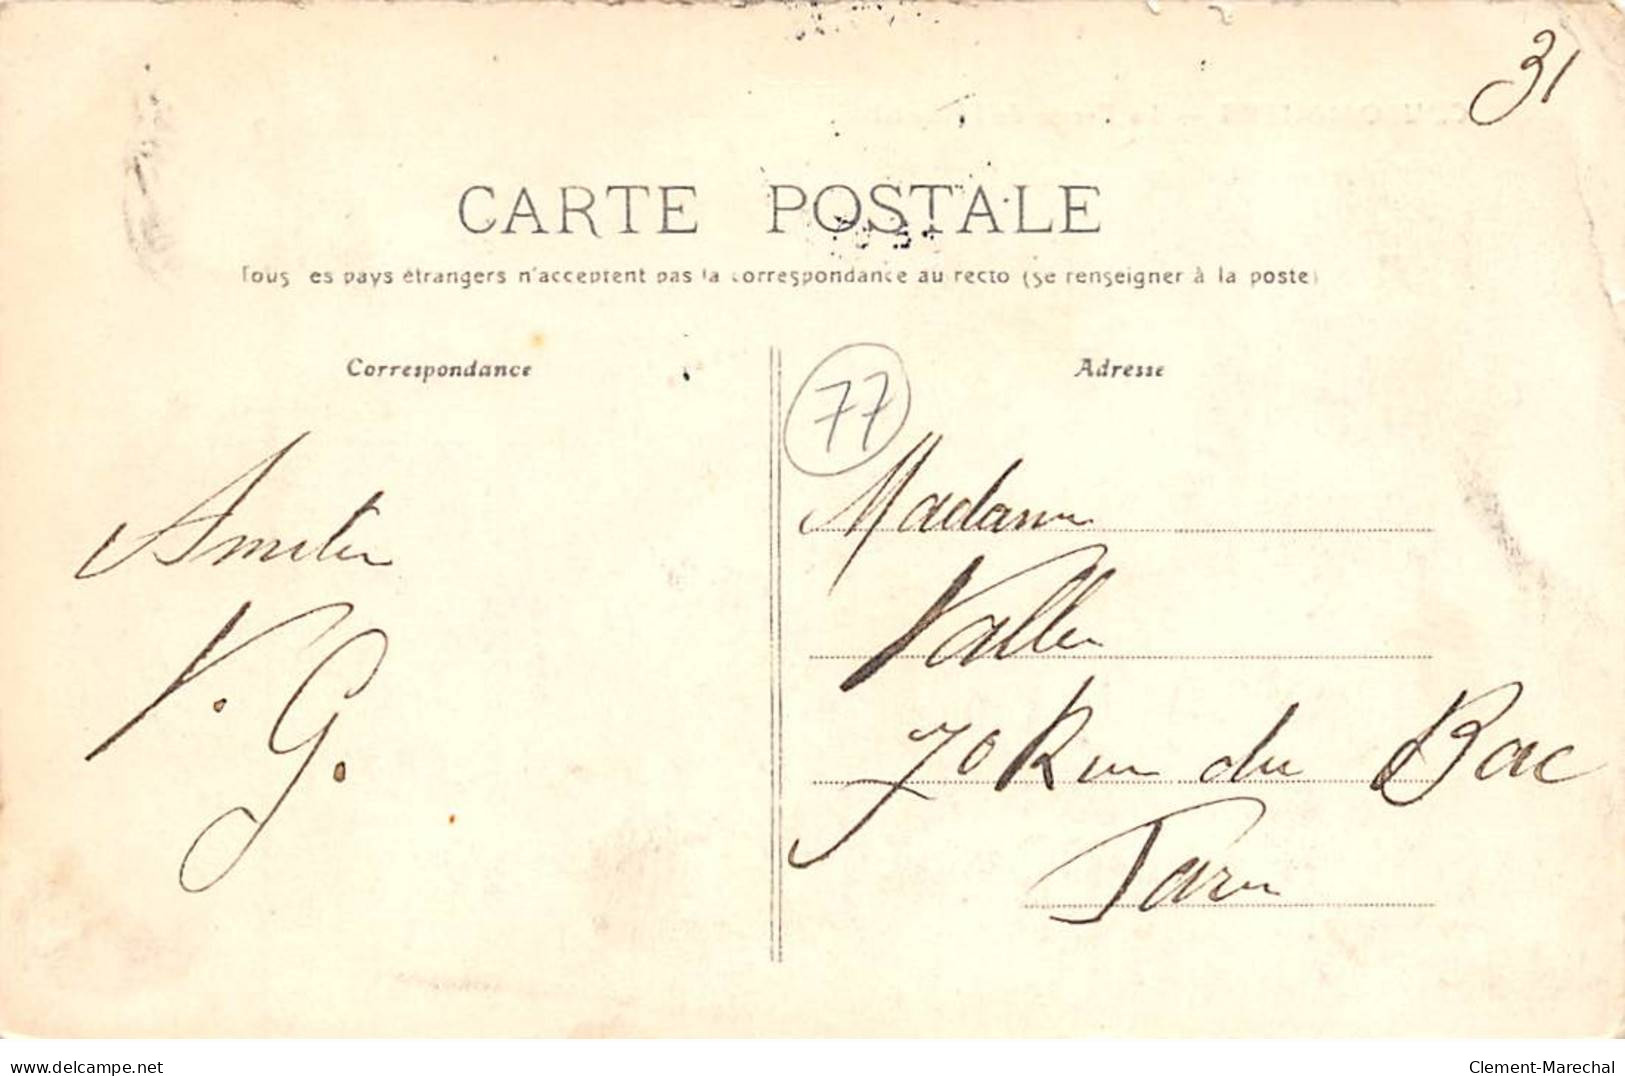 31
CARTE POSTALE
Tous les pays étrangers n'acceptent pas la correspondance au recto (Se renseigner à la poste)
Correspondance
Adresse
77
Amitiés
V. G.
Madame
Vallée
70 Rue du Bac
Paris
delcampe.net
Clement-Marechal